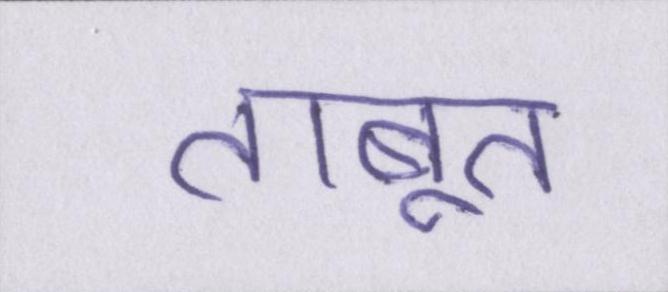 ताबूत